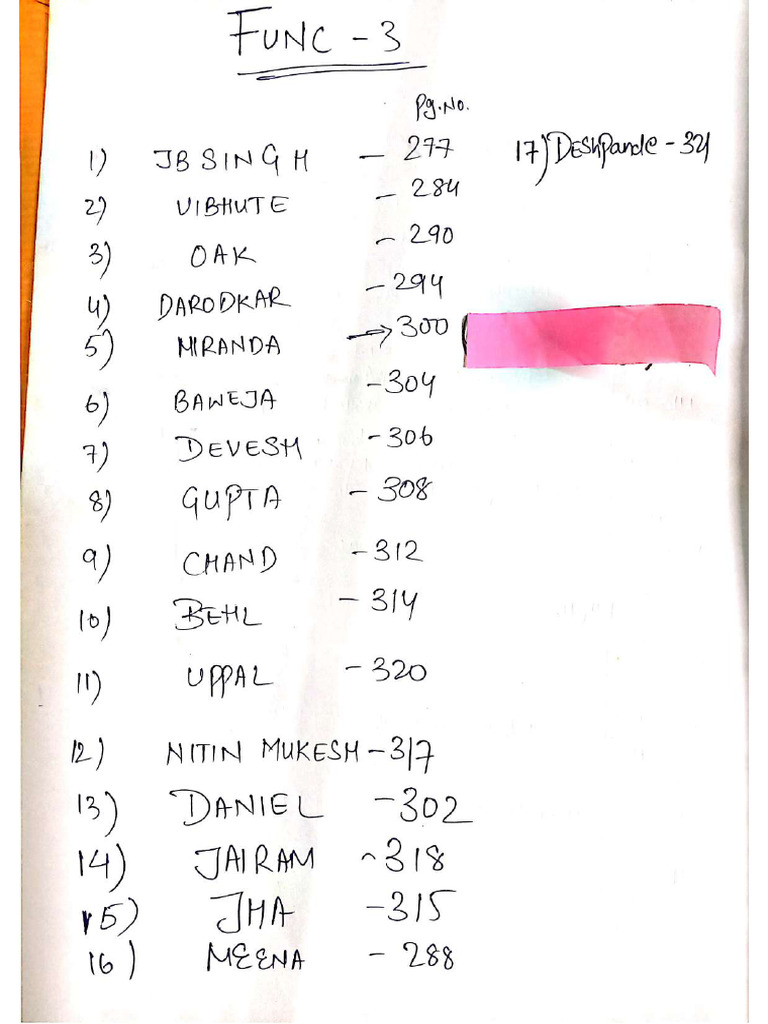 FUNC - 3
Pg.No.
1) JB SINGH - 277
2) VIBHUTE - 284
3) OAK - 290
4) DARODKAR - 294
5) MIRANDA → 300
6) BAWEJA - 304
7) DEVESH - 306
8) GUPTA - 308
9) CHAND - 312
10) BEHL - 314
11) UPPAL - 320
12) NITIN MUKESH - 317
13) DANIEL - 302
14) JAIRAM - 318
15) JHA - 315
16) MEENA - 288
17) DEShPande - 321